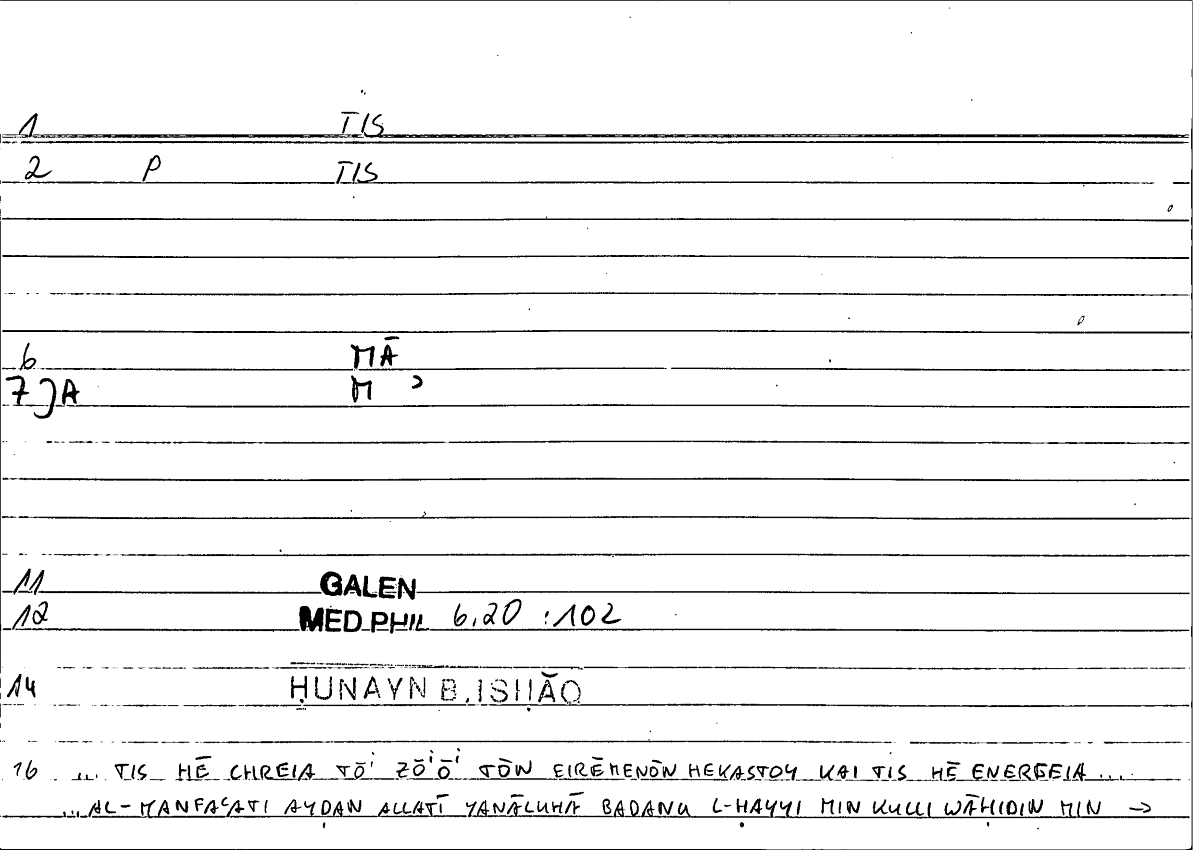 1 TIS
2 P TIS
6 MĀ
7)A M ʾ
11 GALEN
12 MED PHIL 6,20 :102
14 ḤUNAYN B. ISḤĀQ
16 ... TIS HĒ CHREIA TŌⁱ ZŌⁱŌⁱ TŌN EIRĒMENŌN HEKASTOY KAI TIS HĒ ENERGEIA ...
...AL-MANFAʿATI AYḌAN ALLATĪ YANĀLUHĀ BADANU L-ḤAYYI MIN KULLI WĀḤIDIN MIN →